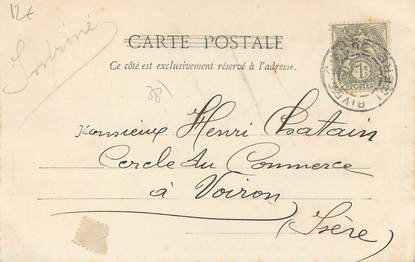 12€
Imprimé
CARTE POSTALE
Ce côté est exclusivement réservé à l'adresse.
38)
Monsieur Henri Chatain
Cercle du Commerce
à Voiron
(Isère)
1c
POSTES